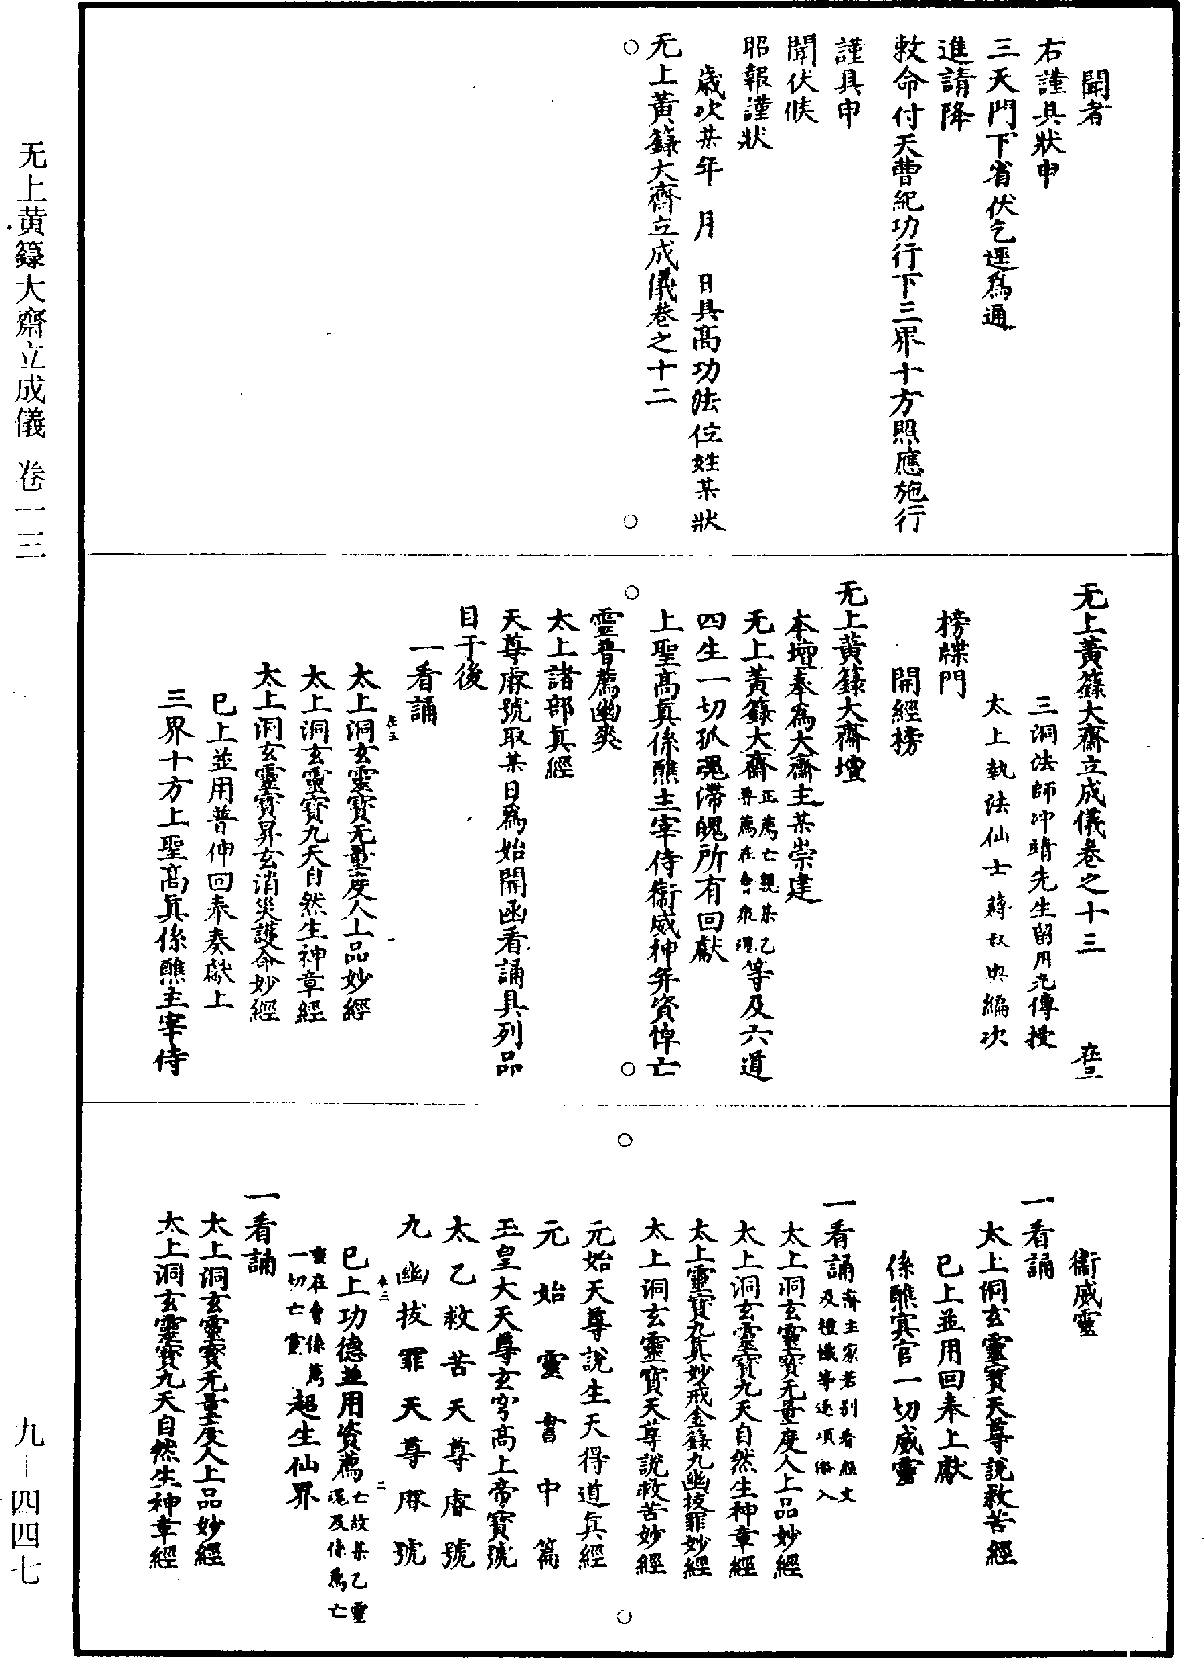 聞者
右謹具狀申
三天門下省伏乞逕爲通
進請降
敕命付天曹紀功行下三界十方照應施行
謹具申
聞伏候
昭報謹狀
歲次某年 月 日具高功法位姓某狀
无上黃籙大齋立成儀卷之十二
无上黃籙大齋立成儀卷之十三
三洞法師冲靖先生留用光傳授
太上執法仙士蔣叔輿編次
榜牒門
開經榜
无上黃籙大齋壇
本壇奉爲大齋主某崇建
无上黃籙大齋正薦亡親某乙等及六道
普薦在會眾魂
四生一切孤魂滯魄所有回獻
上聖高眞係醮主宰侍衛威神并資悼亡
靈普薦幽爽
太上諸部眞經
天尊睿號取某日爲始開函看誦具列品
目于後
一看誦
太上洞玄靈寶无量度人上品妙經
太上洞玄靈寶九天自然生神章經
太上洞玄靈寶昇玄消災護命妙經
已上並用普伸回奉奏獻上
三界十方上聖高眞係醮主宰侍
衛威靈
一看誦
太上洞玄靈寶天尊說救苦經
已上並用回奉上獻
係醮冥官一切威靈
一看誦齋主家若別看經文
及禮懺等逐項儹入
太上洞玄靈寶无量度人上品妙經
太上洞玄靈寶九天自然生神章經
太上靈寶九眞妙戒金籙九幽拔罪妙經
太上洞玄靈寶天尊說救苦妙經
元始天尊說生天得道眞經
元始靈書中篇
玉皇大天尊玄穹高上帝寶號
太乙救苦天尊睿號
九幽拔罪天尊睿號
已上功德並用資薦亡故某乙靈
魂及係薦亡
靈在會係薦
一切亡靈超生仙界
一看誦
太上洞玄靈寶无量度人上品妙經
太上洞玄靈寶九天自然生神章經
无上黄籙大齋立成儀 卷一三
九—四四七